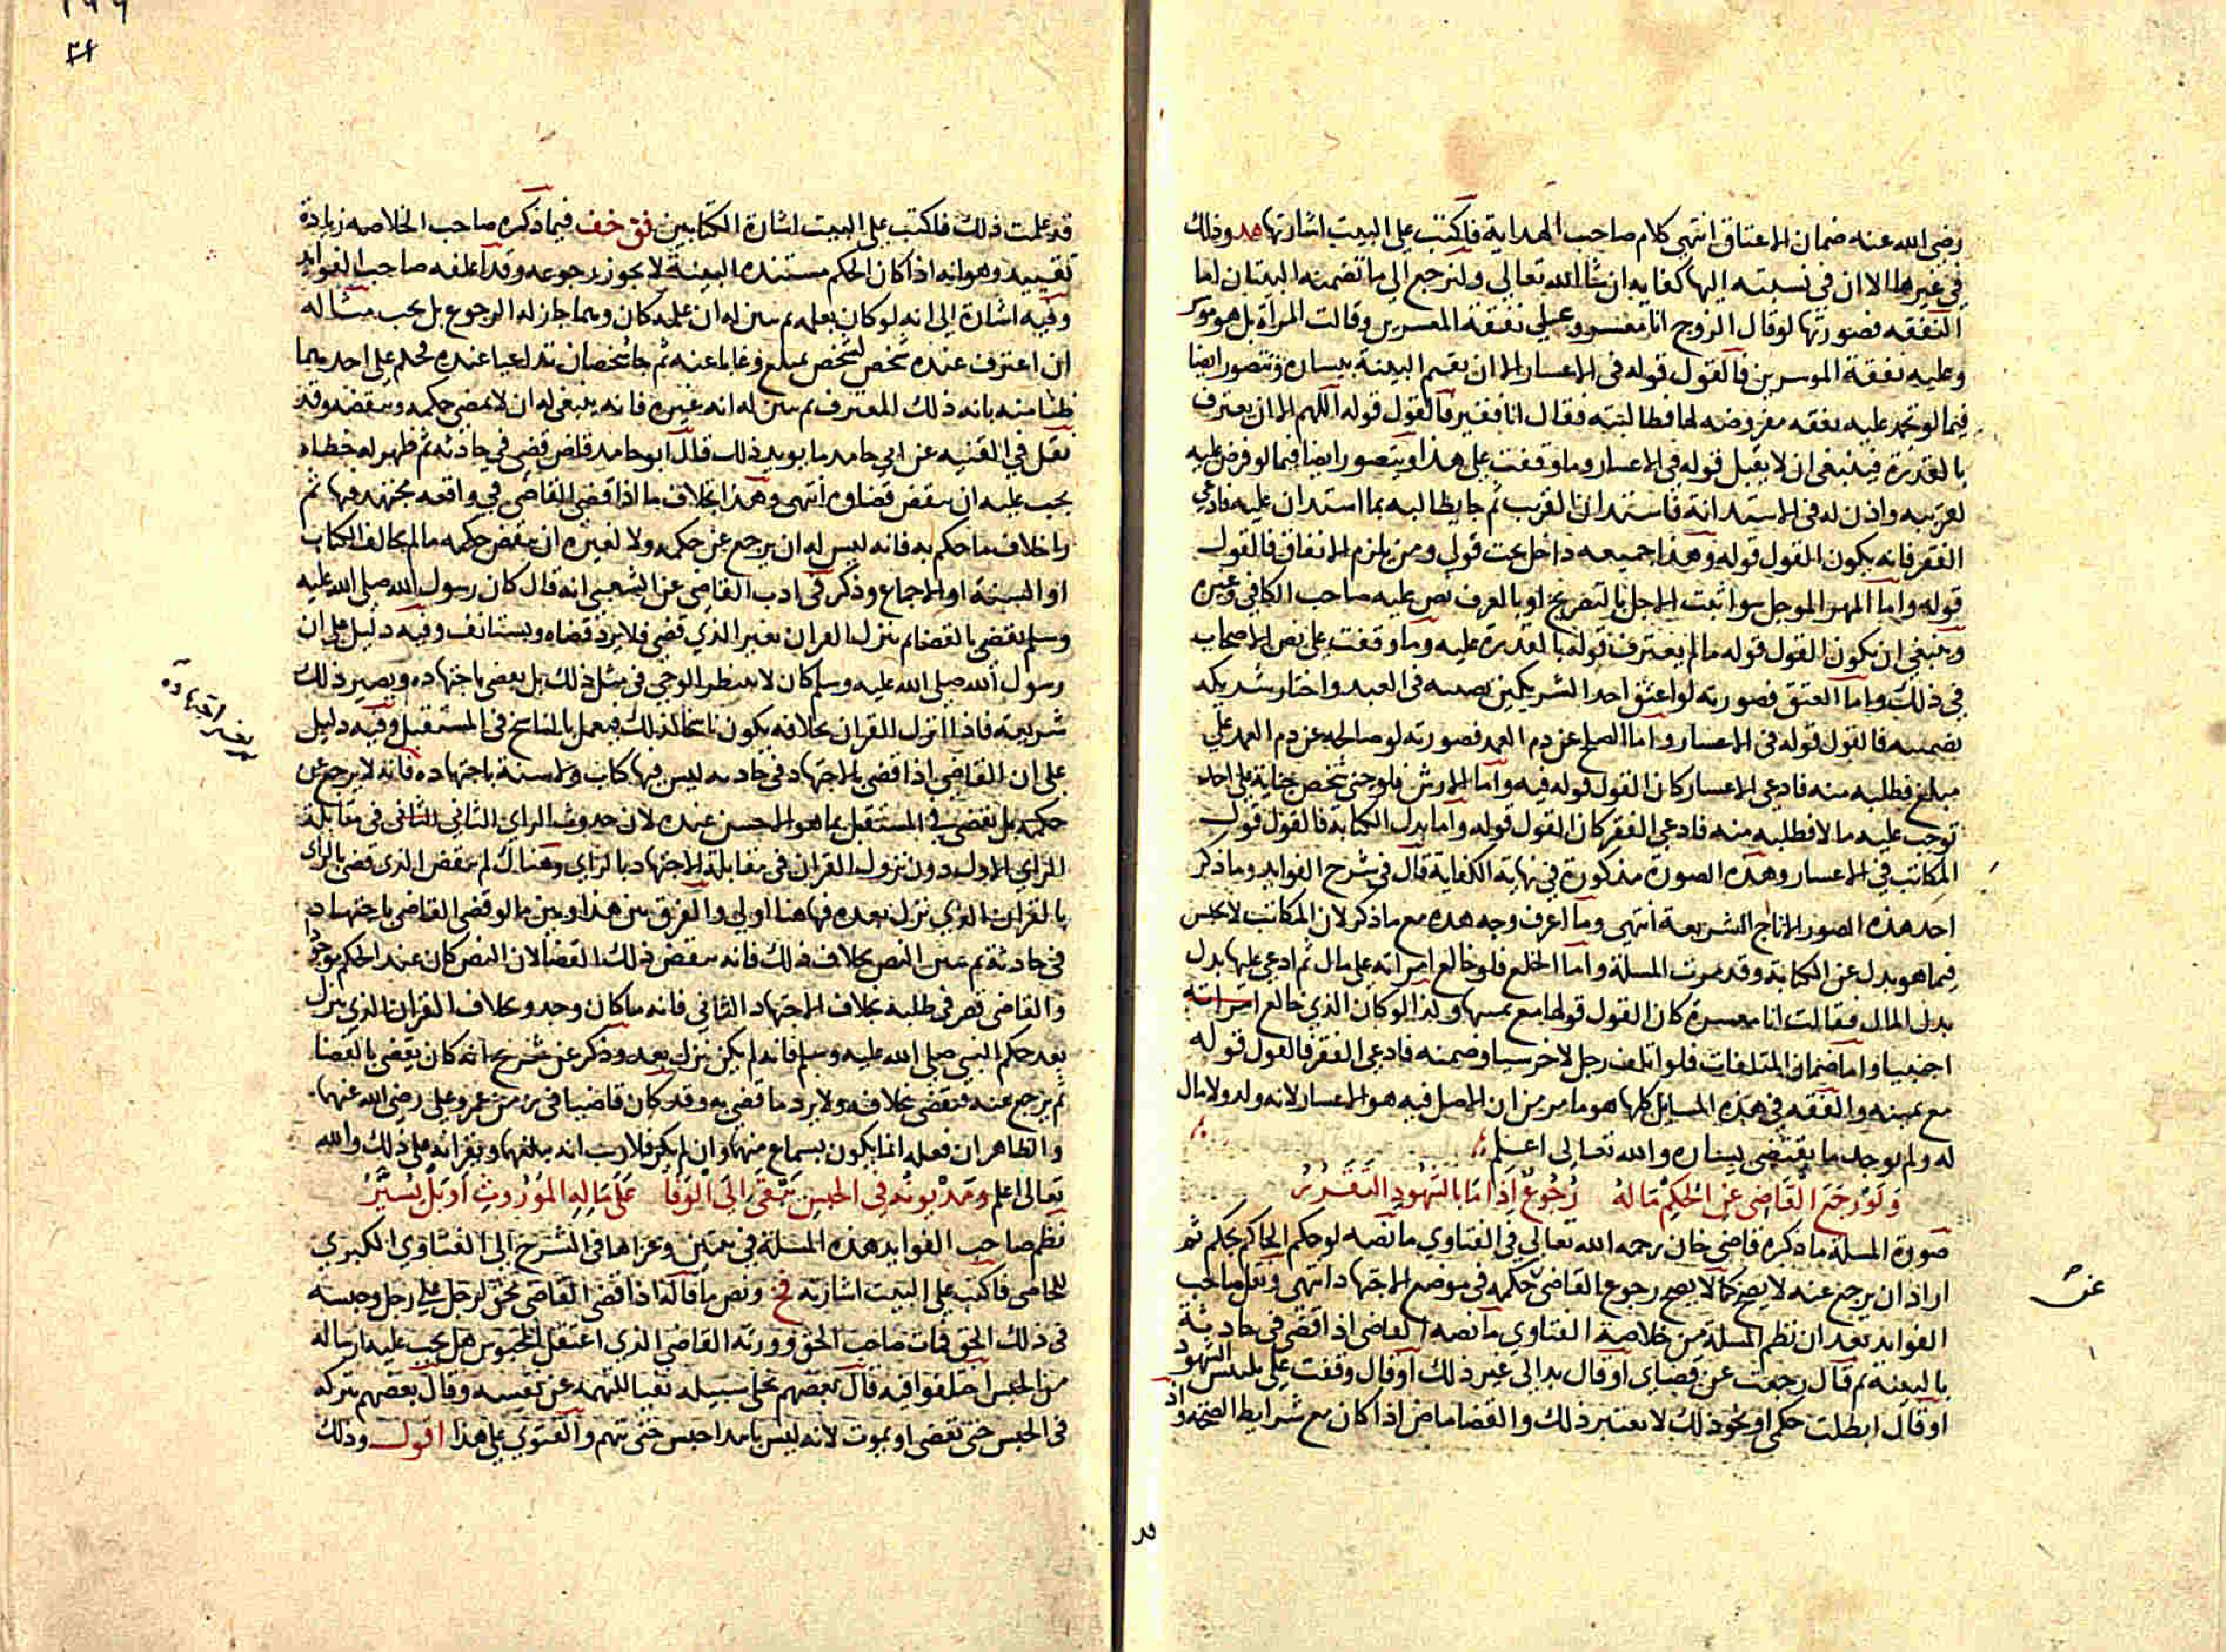 رضي الله عنه ضمان الاعتاق انتهى كلام صاحب الهداية فاكتب على البيت اشارتها هد وذلك
في غيرها الا ان في نسبته اليها كفاية ان شا الله تعالى ولنرجع الى ما تضمنه البيتان اما
النفقه فصورتها لو قال الزوج انا معسر وعلي نفقة المعسرين وقالت المراة بل هو موسر
وعليه نفقة الموسرين فالقول قوله في الاعسار الا ان تقيم البينة بيساره وتتصور ايضا
فيما لو تجمد عليه نفقه مفروضه لها فطالبته فقال انا فقير فالقول قوله اللهم الا ان يعترف
بالقدرة فينبغي ان لا يقبل قوله في الاعسار وما وقفت على هذا ويتصور ايضا فيما لو فرض عليه
لقريبه واذن له في الاستدانة فاستدان القريب ثم جا يطالبه بما استدان عليه فادعى
الفقر فانه يكون القول قوله وهذا جميعه داخل تحت قولي ومن يلزم الانفاق فالقول
قوله واما المهر الموجل سوا ثبت الاجل بالتصريح او بالعرف نص عليه صاحب الكافي وغيره
وينبغي ان يكون القول قوله ما لم يعترف قوله بالقدرة عليه وما وقفت على نص الاصحاب
في ذلك واما العتق فصورته لو اعتق احد الشريكين نصيبه في العبد واختار شريكه
تضمينه فالقول قوله في الاعسار واما الصلح عن دم العمد فصورته لو صالحه عن دم العمد على
مبلغ فطلبه منه فادعى الاعسار كان القول قوله فيه واما الارش فلو جنى شخص جناية على احد
توجب عليه مالا فطلبه منه فادعى الفقر كان القول قوله واما بدل الكتابة فالقول قول
المكاتب في الاعسار وهذه الصورة مذكورة في نهاية الكفاية قال في شرح الفوايد وما ذكر
احد هذه الصور الا تاج الشريعة انتهى وما اعرف وجه هذه مع ما ذكر لان المكاتب لا يحبس
فيما هو بدل عن الكتابة وقد مرت المسلة واما الخلع فلو خالع امراته على مال ثم ادعى عليها بدل
بدل المال فقالت انا معسرة كان القول قولها مع يمينها وكذا لو كان الذي خالع امراته
اجنبيا واما ضمان المتلفات فلو اتلف رجل لاخر شيا وضمنه فادعى الفقر فالقول قوله
مع يمينه والفقه في هذه المسايل كلها هو ما مر من ان الاصل فيه هو الاعسار لانه ولد ولا مال
له ولم يوجد ما يقتضي يساره والله تعالى اعلم
ولو رجع القاضي عن الحكم ماله رجوع اذا ما بالشهود التقرر
صورة المسلة ما ذكره قاضي خان رحمه الله تعالى في الفتاوي ما نصه لو حكم الحاكم بحكم ثم
اراد ان يرجع عنه لا يصح كما لا يصح رجوع القاضي حكمه في موضع الاجتهاد انتهى ونقل صاحب
عن
الفوايد بعد ان نظم المسلة من خلاصة الفتاوي ما نصه القاضي اذا قضى في حادثة
بالبينة ثم قال رجعت عن قضاي او قال بدا لي غير ذلك او قال وقفت على تلبيس الشهود
او قال ابطلت حكمي او نحو ذلك لا يعتبر ذلك والقضا ماض اذا كان مع شرايط الصحة واذ
قد
قد علمت ذلك فاكتب على البيت اشارة الكتابين فق خف فيما ذكره صاحب الخلاصه زيادة
تقييد وهو انه اذا كان الحكم مستنده البينة لا يجوز رجوعه وقد اغلفه صاحب الفوايد
وفيه اشارة الى انه لو كان بعلمه ثم تبين له ان علمه كان وهما جاز له الرجوع بل يجب مثاله
ان اعترف عنده شخص لشخص بمبلغ وغابا عنه ثم جا شخصان تداعيا عنده فحكم على احدهما
ظنا منه بانه ذلك المعترف ثم تبين له انه غيره فانه ينبغي له ان لا يمضي حكمه وينقضه وقد
نقل في القنيه عن ابي حامد ما يويد ذلك قال ابو حامد قاض قضى في حادثه ثم ظهر له خطاه
يجب عليه ان ينقض قضاوه انتهى وهذا بخلاف ما اذا قضى القاضي في واقعه مجتهد فيها ثم
راى خلاف ما حكم به فانه ليس له ان يرجع عن حكمه ولا لغيره ان ينقض حكمه ما لم يخالف الكتاب
او السنة او الاجماع وذكر في ادب القاضي عن الشعبي انه قال كان رسول الله صلى الله عليه
وسلم يقضي بالقضا ثم ينزل القران بغير الذي قضى فلا يرد قضاه ويستانف وفيه دليل على ان
رسول الله صلى الله عليه وسلم كان لا ينتظر الوحي في مثل ذلك بل يقضي باجتهاده ويصير ذلك
شريعة فاذا نزل القران بخلافه يكون ناسخا لذلك فيعمل بالناسخ في المستقبل وفيه دليل
على ان القاضي اذا قضى بالاجتهاد في حادثه ليس فيها كتاب ولا سنة باجتهاده فانه لا يرجع عن
حكمه بل يقضي في المستقبل بما هو الاحسن عنده لان حدوث الراي الثاني الثاني في مقابلة
الراي الاول دون نزول القران في مقابلة الاجتهاد بالراي وهناك لم ينقض الذي قضى بالراي
بالقران الذي نزل بعده فها هنا اولى والفرق بين هذا وبين ما لو قضى القاضي باجتهاده
في حادثة ثم تبين النص بخلاف ذلك فانه ينقض ذلك القضا لان النص كان عند الحكم موجود
والقاضي قصر في طلبه بخلاف الاجتهاد الثاني فانه ما كان وجد وبخلاف القران الذي ينزل
بعد حكم النبي صلى الله عليه وسلم فانه لم يكن نزل بعد وذكر عن شريح انه كان يقضي بالقضا
ثم يرجع عنه فيقضي بخلافه ولا يرد ما قضى به وقد كان قاضيا في زمن عمر وعلي رضي الله عنهما
والظاهر ان فعله انما يكون بسماع منهما وان لم يكن فلا ريب انه بلغهما وتقراره على ذلك والله
تعالى اعلم ومديونه في الحبس يبقى الى الوفا على ماله الموروث او بل يسير
نظم صاحب الفوايد هذه المسلة في بيتين وعزاها في الشرح الى الفتاوي الكبرى
للخاصي فاكتب على البيت اشارته فخ ونص ما قاله اذا قضى القاضي بحق لرجل على رجل وحبسه
في ذلك الحق فمات صاحب الحق وورثه القاضي الذي اعتقل المحبوس هل يجب عليه ارساله
من الحبس اختلفوا فيه قال بعضهم يخلى سبيله نفيا للتهمه عن نفسه وقال بعضهم يتركه
في الحبس حتى يقضي او يموت لانه ليس بامد احبس حتى يتهم والفتوي على هذا اقول وذلك